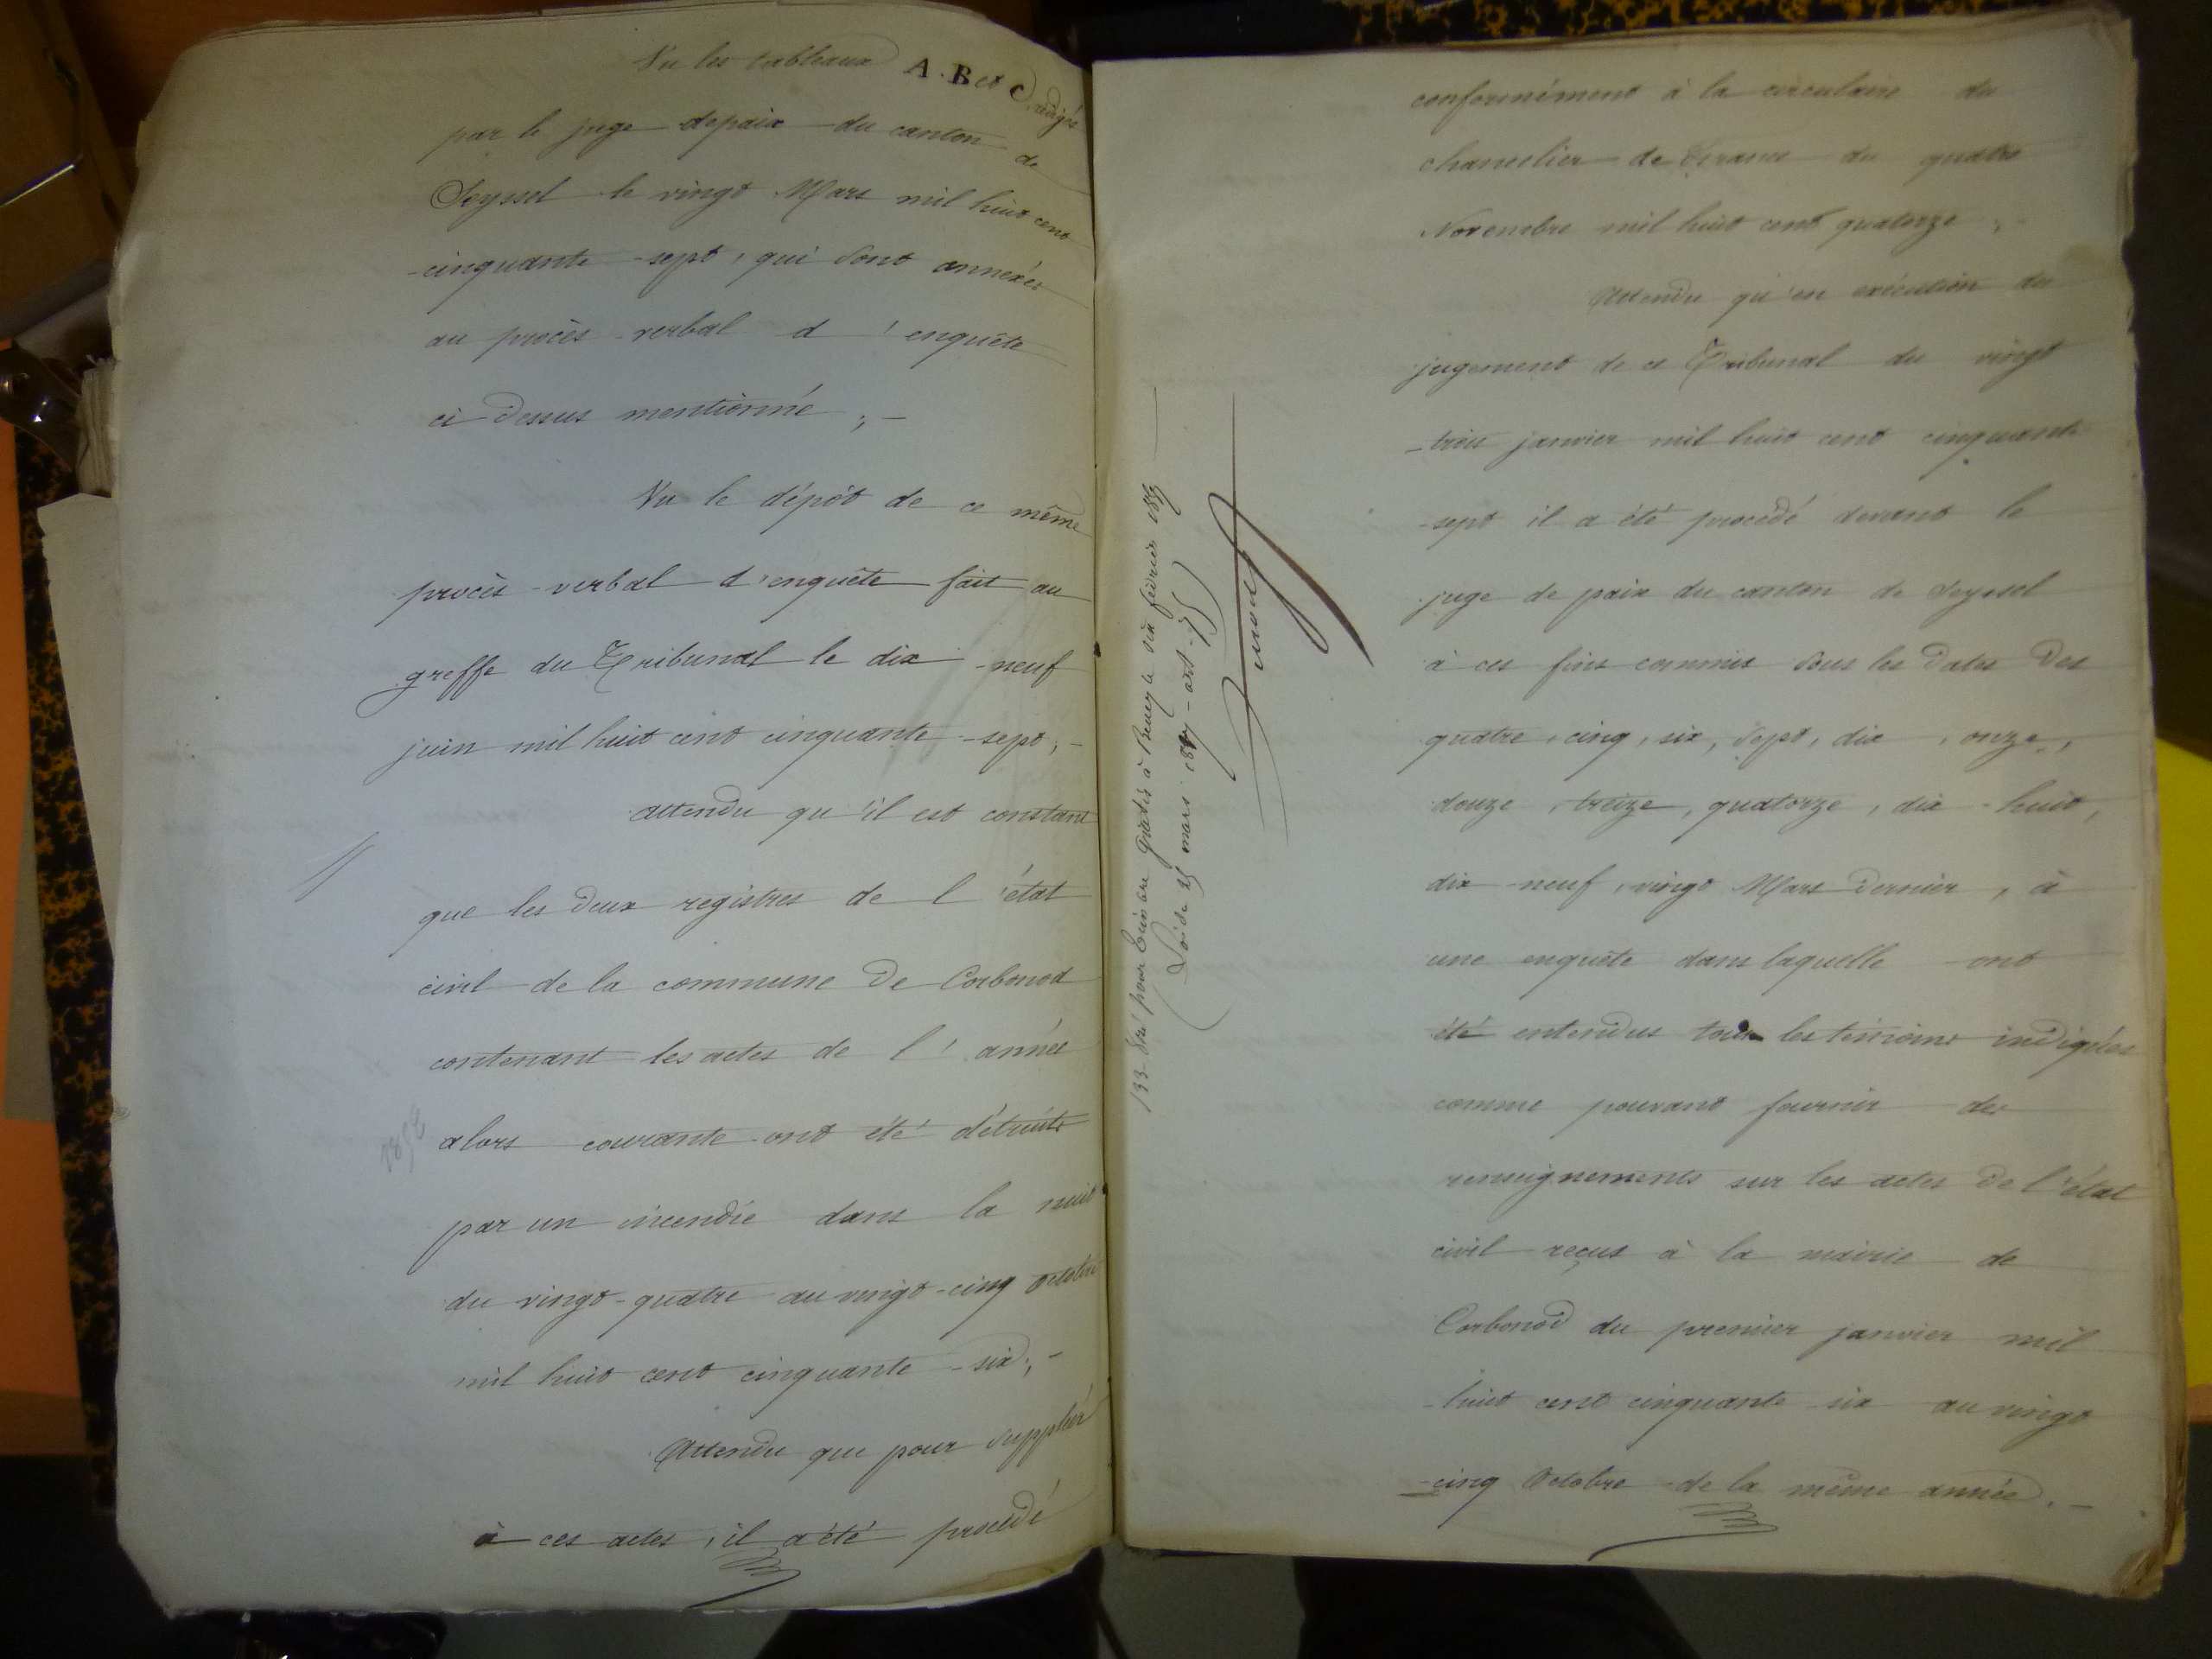 Vu les tableaux A. B et C rédigés
par le juge de paix du canton de
Seyssel le vingt Mars mil huit cent
cinquante-sept, qui sont annexés
au procès-verbal d'enquête
ci-dessus mentionné ;-
Vu le dépôt de ce même
procès-verbal d'enquête fait au
greffe du Tribunal le dix-neuf
juin mil huit cent cinquante-sept ;-
attendu qu'il est constant
que les deux registres de l'état
civil de la commune de Corbonod
contenant les actes de l'année
alors courante ont été détruits
par un incendie dans la nuit
du vingt-quatre au vingt-cinq octobre
mil huit cent cinquante-six ;-
Attendu que pour suppléer
à ces actes, il a été procédé
133
pour timbre gratis à
le six février
Loi du 25 mars 1817 - art. 75)
conformément à la circulaire du
chancelier de France du quatre
Novembre mil huit cent quatorze ;-
Attendu qu'en exécution du
jugement de ce Tribunal du vingt
-trois janvier mil huit cent cinquante
-sept il a été procédé devant le
juge de paix du canton de Seyssel
à ces fins commis sous les dates des
quatre, cinq, six, sept, dix, onze,
douze, treize, quatorze, dix-huit,
dix-neuf, vingt Mars dernier, à
une enquête dans laquelle ont
été entendus tous les témoins indiqués
comme pouvant fournir des
renseignements sur les actes de l'état
civil reçus à la mairie de
Corbonod du premier janvier mil
-huit cent cinquante six au vingt
-cinq Octobre de la même année.-